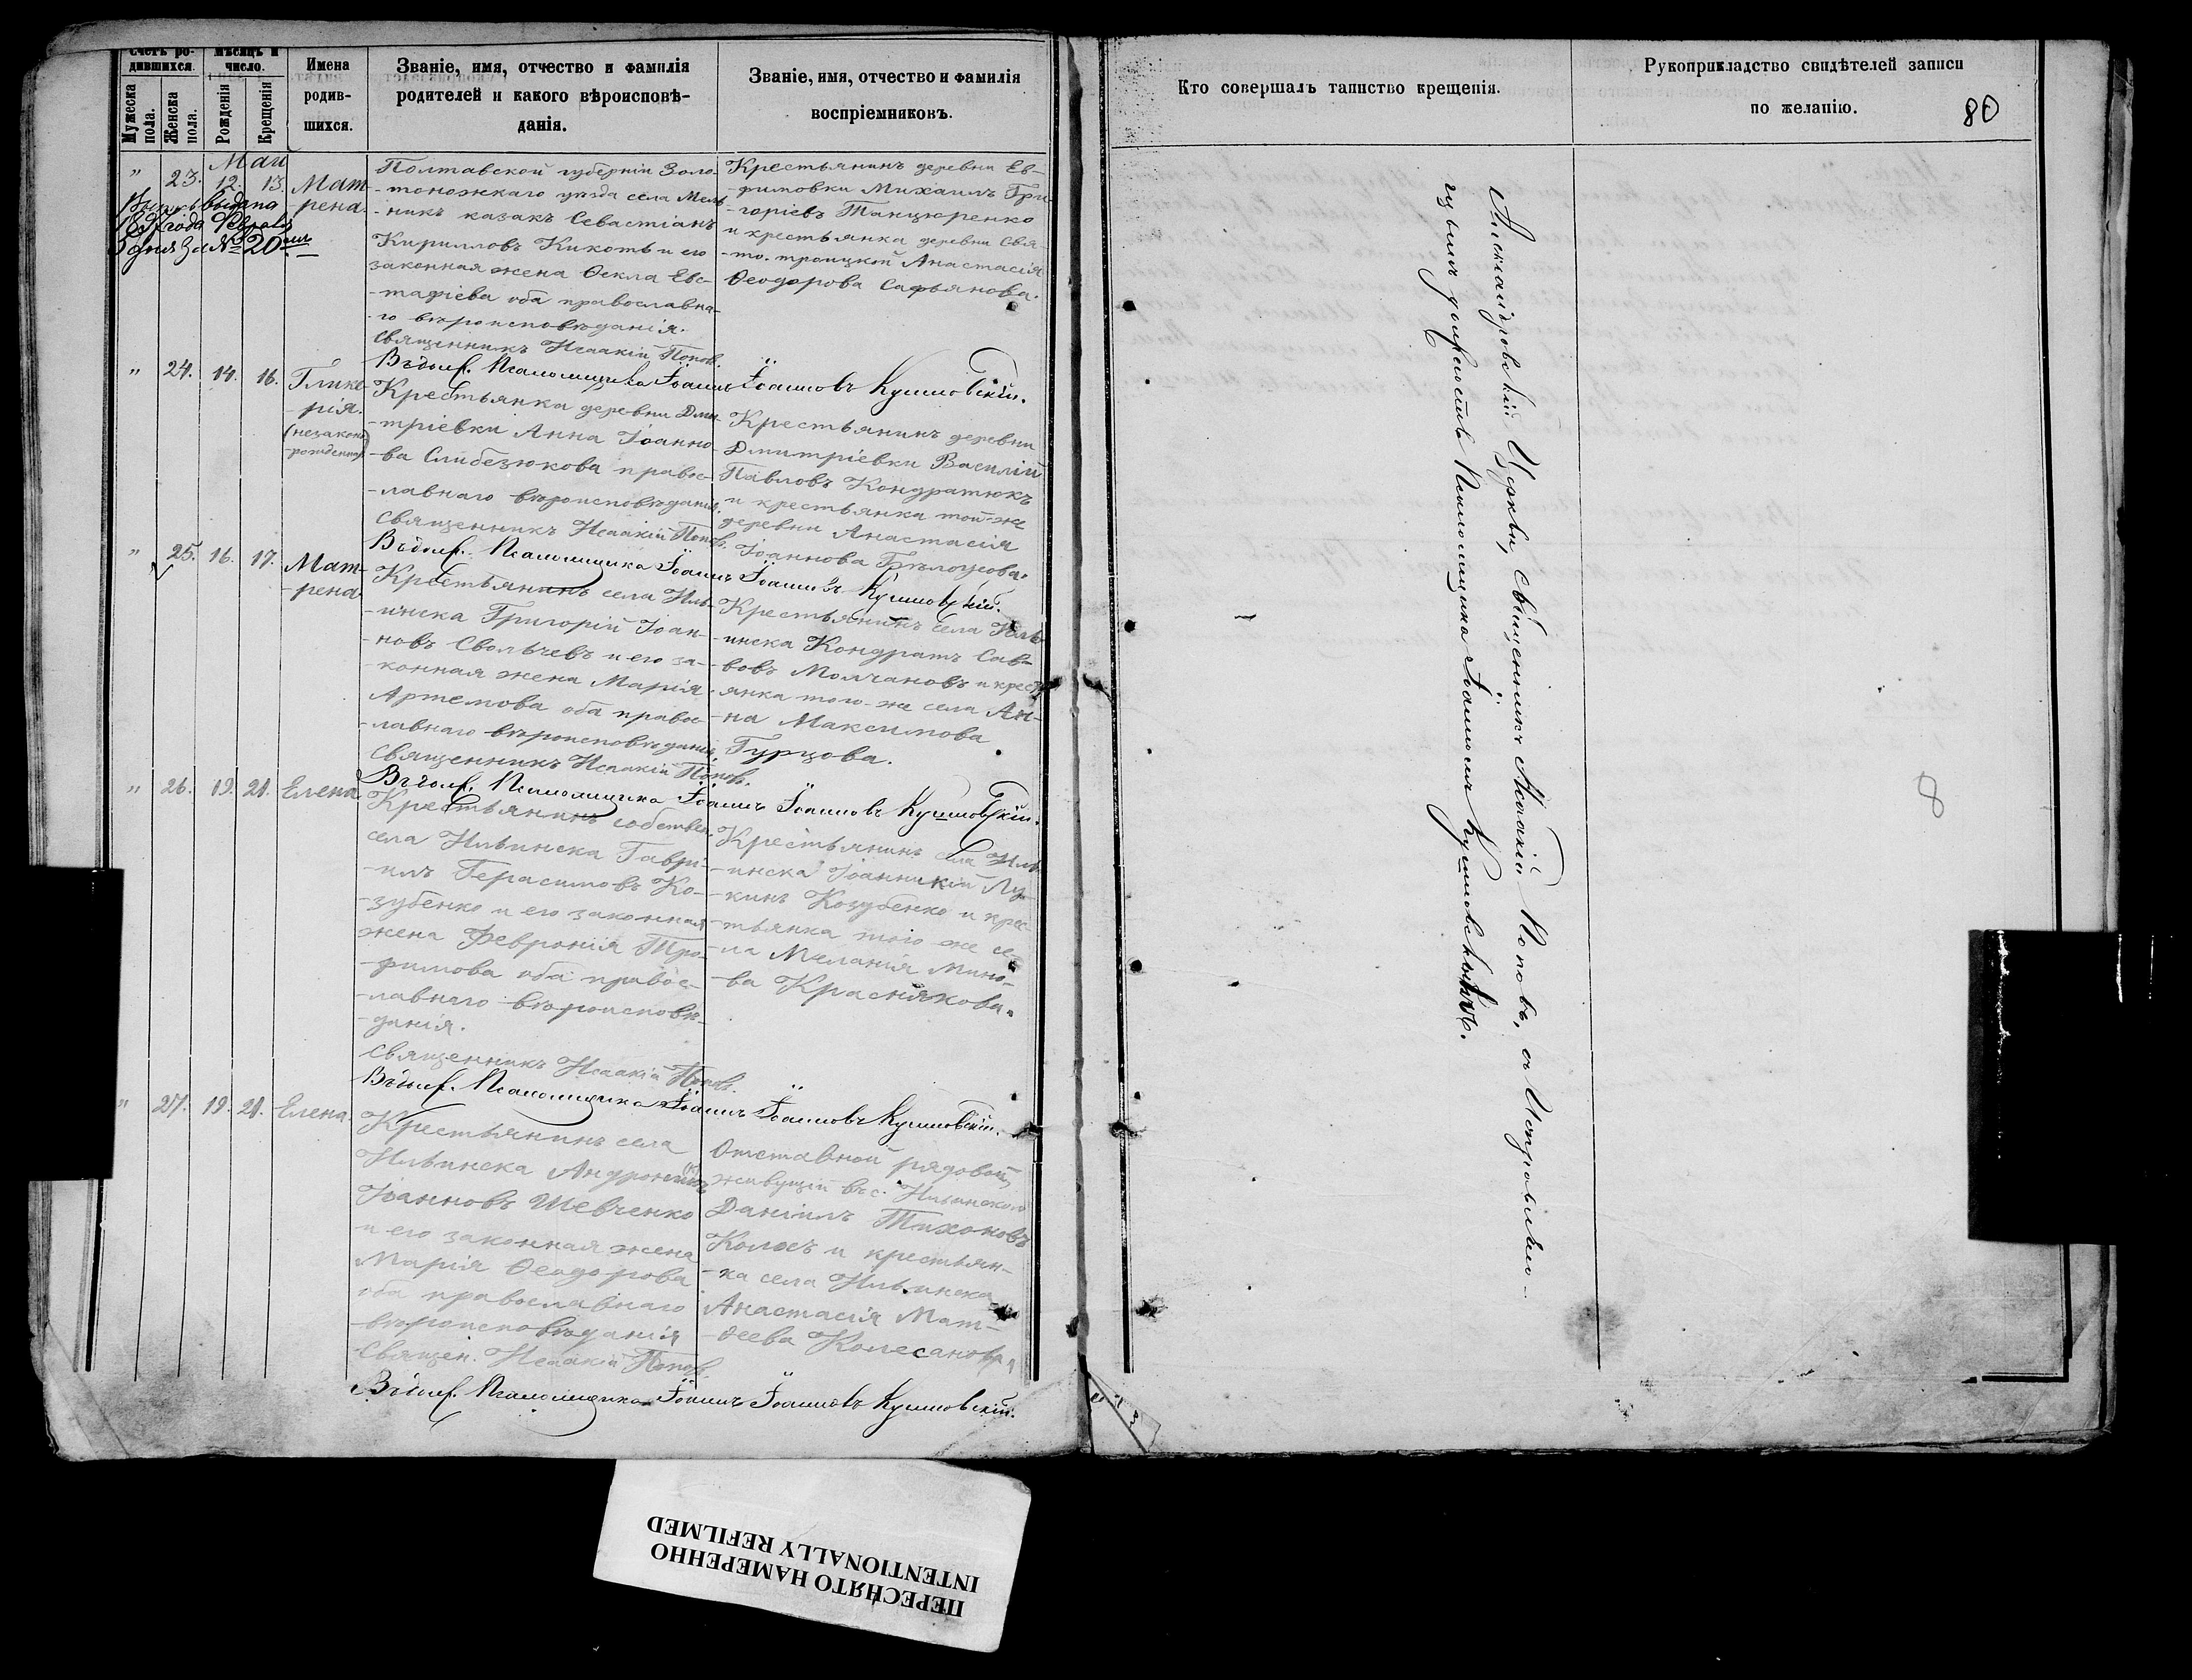 Счетъ ро-
дившихся.
Мѣсяцъ и
число.
Мужеска
пола.
Женска
пола.
Рожденія
Крещенія
Имена
родив-
шихся.
Званіе, имя, отчество и фамилія
родителей и какого вѣроисповѣ-
данія.
Званіе, имя, отчество и фамилія
воспріемниковъ.
Маи
" 23. 12. 13.
Мат-
-рена
выдана
1897 года Февраля
5 дня За № 20
Полтавской губерніи Золо-
-тоножкаго уѣзда села Мель-
-никъ казакъ Севастіанъ
Кирилловъ Кикоть и его
законная жена Ѳекла Евс-
-тафіева оба православна-
-го вѣроисповѣданія.
Священникъ Исаакій Поповъ.
Въ долж. Псаломщика Іоаннъ Іоанновъ Кушновскій.
Крестьянинъ деревни Ев-
-фимовки Михаилъ Гри-
-горіевъ Танцюренко
и крестьянка деревни Свя-
-то-троицкой Анастасія
Ѳеодорова Сафьянова.
" 24. 14. 16.
Глике-
-рія.
(незаконно
-рожденная)
Крестьянка деревни Дми-
-тріевки Анна Іоанно-
-ва Слибезюкова правос-
-лавнаго вѣроисповѣданія.
Священникъ Исаакій Поповъ.
Въ долж. Псаломщика Іоаннъ Іоанновъ Кушновскій.
Крестьянинъ деревни
Дмитріевки Василій
Павловъ Кондратюкъ
и крестьянка той-же
деревни Анастасія
Іоаннова Бѣлоусова.
" 25. 16. 17.
Мат-
-рена
Крестьянинъ села Иль-
-инска Григорій Іоан-
-новъ Свольчевъ и его за-
-конная жена Марія
Артемова оба правос-
-лавнаго вѣроисповѣданія,
Священникъ Исаакій Поповъ.
Въ долж. Псаломщика Іоаннъ Іоанновъ Кушновскій.
Крестьянинъ села Иль-
-инска Кондратъ Сав-
-вовъ Молчановъ и крест-
-янка того-же села Ан-
-на Максимова
Гурцова.
" 26. 19. 21. Елена
Крестьянинъ собствен.
села Ильинска Гаврі-
-илъ Герасимовъ Ко-
-зубенко и его законная
жена Февронія Тро-
-фимова оба правос-
-лавнаго вѣроисповѣ-
-данія.
Священникъ Исаакій Поповъ.
Въ долж. Псаломщика Іоаннъ Іоанновъ Кушновскій.
Крестьянинъ села Иль-
-инска Іоанникій Лу-
-кинъ Козубенко и крес-
-тьянка того же се-
-ла Меланія Мино-
-ва Краснякова.
" 27. 19. 21. Елена
Крестьянинъ села
Ильинска Андроникъ
Іоанновъ Шевченко
и его законная жена
Марія Ѳеодорова
оба православнаго
вѣроисповѣданія
Священ. Исаакій Поповъ
Въ долж. Псаломщика Іоаннъ Іоанновъ Кушновскій.
Отставной рядовой,
живущій въ с. Ильинскомъ
Даніилъ Тихоновъ
Колосъ и крестьян-
-ка села Ильинска
Анастасія Мат-
-ѳеева Колесанова
Кто совершалъ таинство крещенія.
Рукоприкладство свидѣтелей записи
по желанію.
80
Александровскій Церкви, священникъ Исаакій Поповъ, съ Исправляю-
щимъ должность Псаломщика Іоанномъ Кушновскимъ.
8
ПЕРЕСНЯТО НАМЕРЕННО
INTENTIONALLY REFILMED